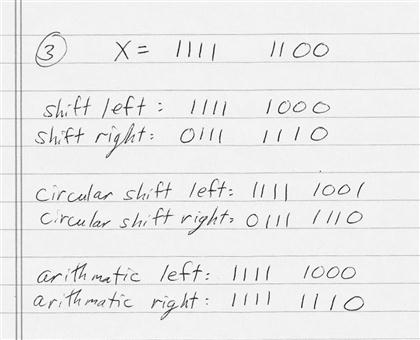 3 X = 1111 1100
shift left: 1111 1000
shift right: 0111 1110
circular shift left: 1111 1001
circular shift right: 0111 1110
arithmatic left: 1111 1000
arithmatic right: 1111 1110